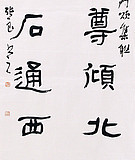 門頌集聯
尊傾北
石通西